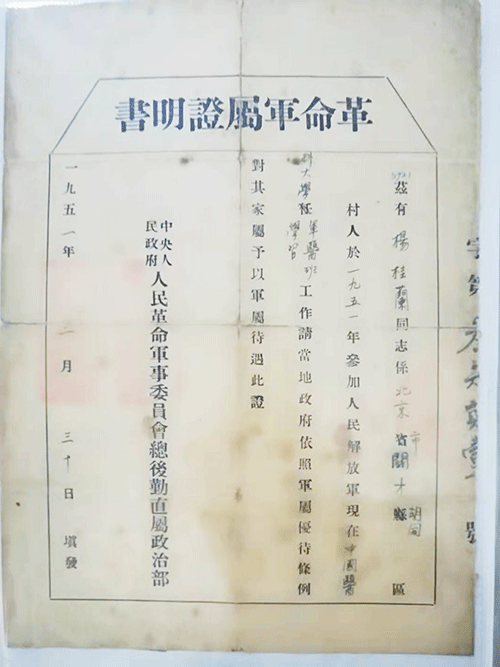 革命軍屬證明書
茲有楊桂蘭同志係北京市省關才胡同縣區
村人於一九五一年參加人民解放軍現在中國醫
科大學任軍醫班學習工作請當地政府依照軍屬優待條例
對其家屬予以軍屬待遇此證
中央人民政府人民革命軍事委員會總後勤直屬政治部
一九五一年三月三十日填發
字第號